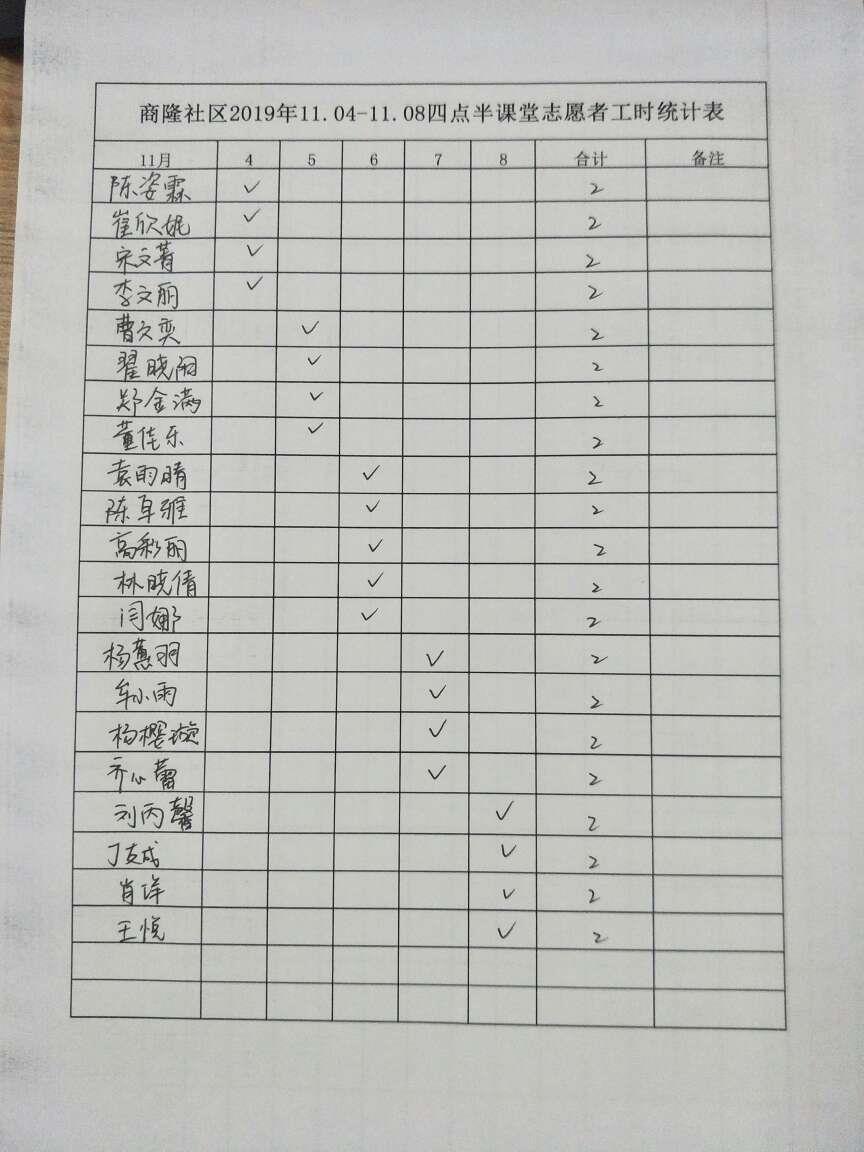 商隆社区2019年11.04-11.08四点半课堂志愿者工时统计表
11月 4 5 6 7 8 合计 备注
陈姿霖 ✓ 2
崔欣妮 ✓ 2
宋文菁 ✓ 2
李文丽 ✓ 2
曹文奕 ✓ 2
翟晓阳 ✓ 2
郑金满 ✓ 2
董佳乐 ✓ 2
袁雨晴 ✓ 2
陈卓雅 ✓ 2
高彩丽 ✓ 2
林晓倩 ✓ 2
闫娜 ✓ 2
杨蕙羽 ✓ 2
车小雨 ✓ 2
杨樱璇 ✓ 2
齐心蕾 ✓ 2
刘丙馨 ✓ 2
丁 ✓ 2
肖洋 ✓ 2
王悦 ✓ 2